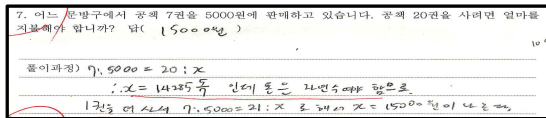 7. 어느 문방구에서 공책 7권을 5000원에 판매하고 있습니다. 공책 20권을 사려면 얼마를
지불해야 합니까? 답( 15000원 )
풀이과정) 7:5000 = 20:x
∴x = 14285 5/7 인데 돈은 자연수여야 함으로
1권을 더 사서 7:5000=21:x 로 해서 x=15000원이 나온다.